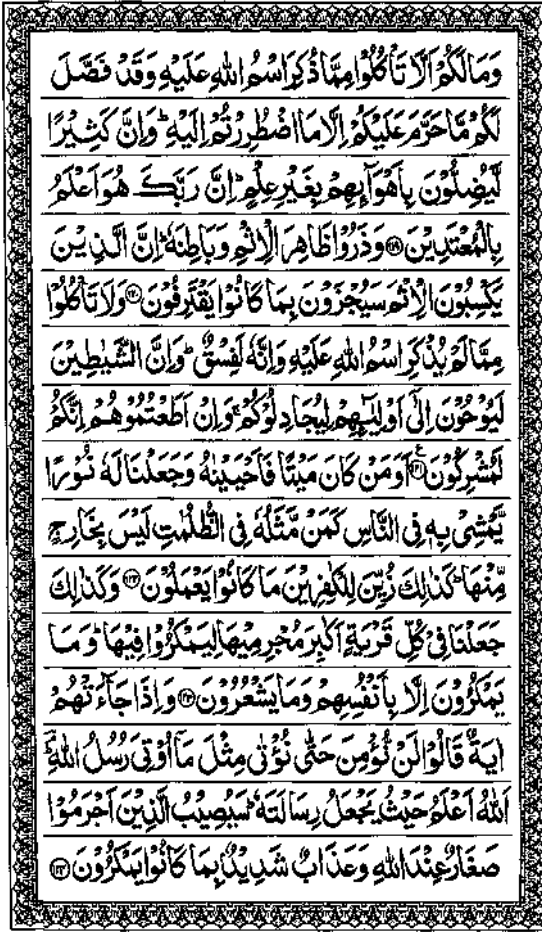 وَمَا لَكُمْ اَلَّا تَاْكُلُوْا مِمَّا ذُكِرَ اسْمُ اللّٰهِ عَلَيْهِ وَقَدْ فَصَّلَ
لَكُمْ مَّا حَرَّمَ عَلَيْكُمْ اِلَّا مَا اضْطُرِرْتُمْ اِلَيْهِ ؕ وَاِنَّ كَثِيْرًا
لَّيُضِلُّوْنَ بِاَهْوَآىِٕهِمْ بِغَيْرِ عِلْمٍ ؕ اِنَّ رَبَّكَ هُوَ اَعْلَمُ
بِالْمُعْتَدِيْنَ ﴿۱۱۹﴾ وَذَرُوْا ظَاهِرَ الْاِثْمِ وَبَاطِنَهٗ ؕ اِنَّ الَّذِيْنَ
يَكْسِبُوْنَ الْاِثْمَ سَيُجْزَوْنَ بِمَا كَانُوْا يَقْتَرِفُوْنَ ﴿۱۲۰﴾ وَلَا تَاْكُلُوْا
مِمَّا لَمْ يُذْكَرِ اسْمُ اللّٰهِ عَلَيْهِ وَاِنَّهٗ لَفِسْقٌ ؕ وَاِنَّ الشَّيٰطِيْنَ
لَيُوْحُوْنَ اِلٰٓى اَوْلِيٰٓـِٕهِمْ لِيُجَادِلُوْكُمْ ۚ وَاِنْ اَطَعْتُمُوْهُمْ اِنَّكُمْ
لَمُشْرِكُوْنَ ﴿۱۲۱﴾ اَوَمَنْ كَانَ مَيْتًا فَاَحْيَيْنٰهُ وَجَعَلْنَا لَهٗ نُوْرًا
يَّمْشِيْ بِهٖ فِي النَّاسِ كَمَنْ مَّثَلُهٗ فِي الظُّلُمٰتِ لَيْسَ بِخَارِجٍ
مِّنْهَا ؕ كَذٰلِكَ زُيِّنَ لِلْكٰفِرِيْنَ مَا كَانُوْا يَعْمَلُوْنَ ﴿۱۲۲﴾ وَكَذٰلِكَ
جَعَلْنَا فِيْ كُلِّ قَرْيَةٍ اَكٰبِرَ مُجْرِمِيْهَا لِيَمْكُرُوْا فِيْهَا ؕ وَمَا
يَمْكُرُوْنَ اِلَّا بِاَنْفُسِهِمْ وَمَا يَشْعُرُوْنَ ﴿۱۲۳﴾ وَاِذَا جَآءَتْهُمْ
اٰيَةٌ قَالُوْا لَنْ نُّؤْمِنَ حَتّٰى نُؤْتٰى مِثْلَ مَآ اُوْتِيَ رُسُلُ اللّٰهِ ؔۘ
اَللّٰهُ اَعْلَمُ حَيْثُ يَجْعَلُ رِسَالَتَهٗ ؕ سَيُصِيْبُ الَّذِيْنَ اَجْرَمُوْا
صَغَارٌ عِنْدَ اللّٰهِ وَعَذَابٌ شَدِيْدٌۢ بِمَا كَانُوْا يَمْكُرُوْنَ ﴿۱۲۴﴾